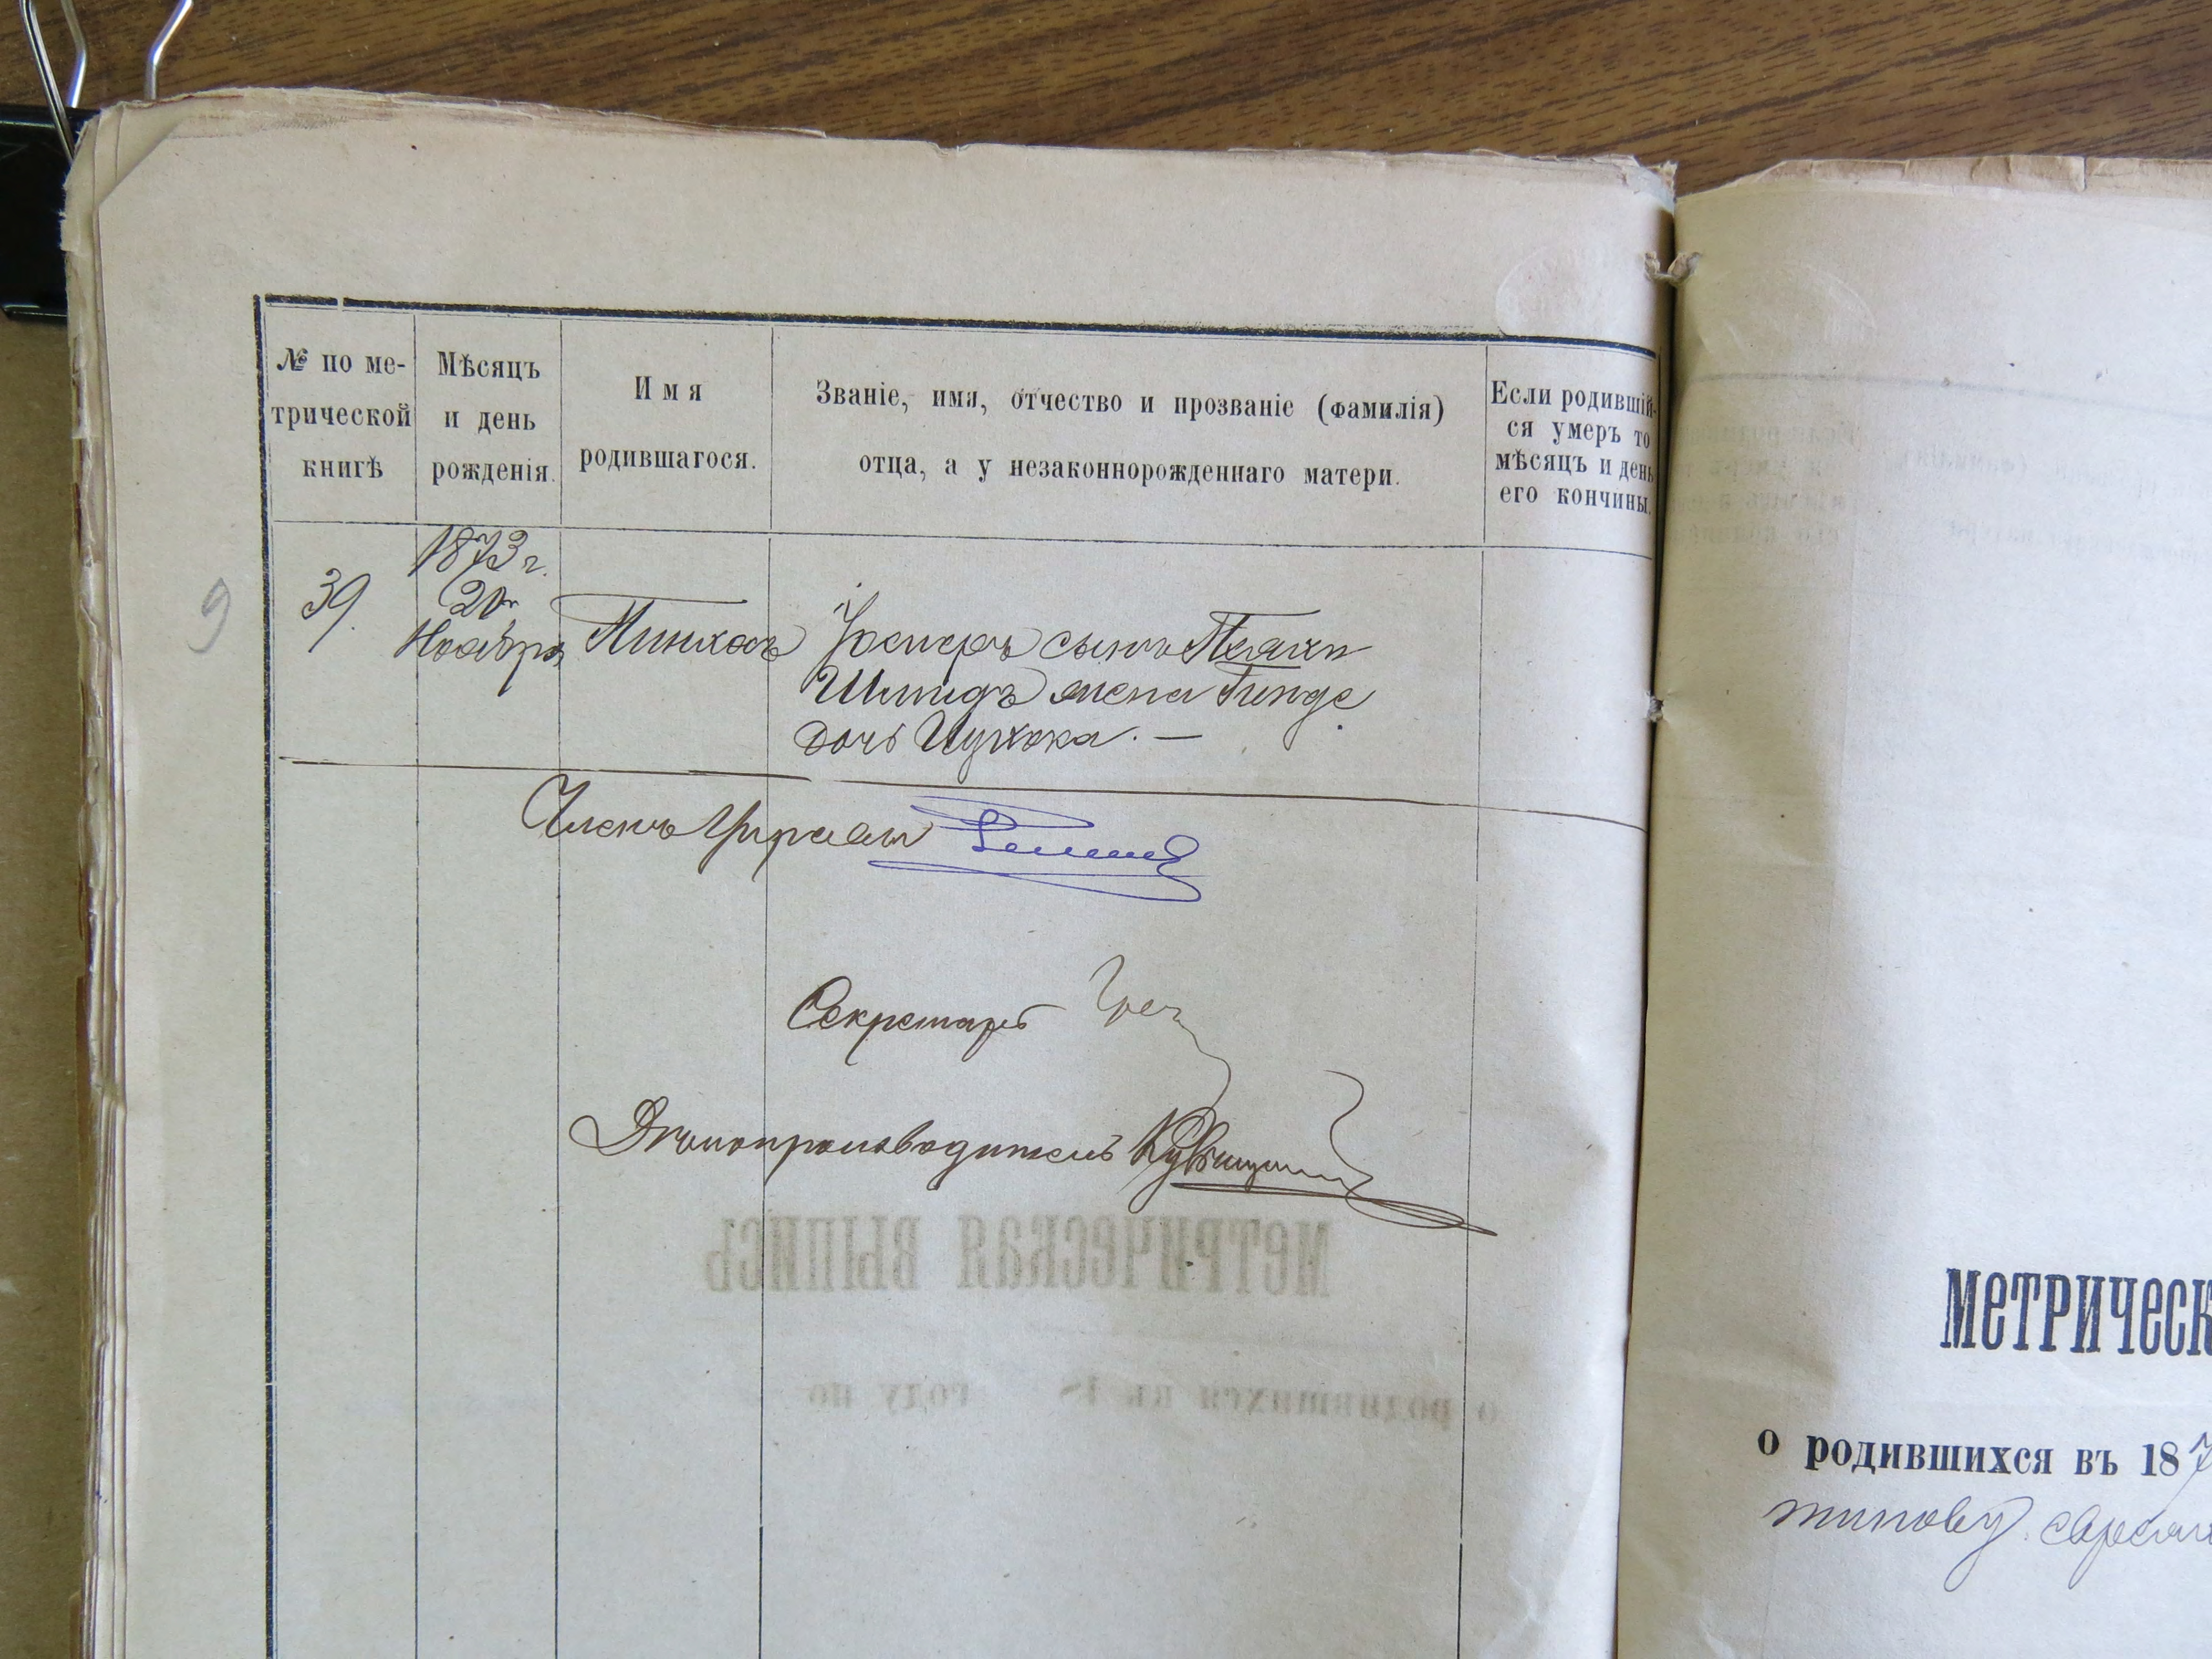 № по ме-
трической
книгѣ
Мѣсяцъ
и день
рожденія.
Имя
родившагося.
Званіе, имя, отчество и прозваніе (фамилія)
отца, а у незаконнорожденнаго матери.
Если родившій-
ся умеръ то
мѣсяцъ и день
его кончины.
9
39.
1873 г.
20
Ноября
Пинхасъ
сынъ
Шмидъ жена Гинде
дочь Ицхока. —
Членъ Управы
Секретарь
Дѣлопроизводитель
МЕТРИЧЕСКАЯ ВЫПИСЬ
о родившихся въ 18 году по
МЕТРИЧЕСК
о родившихся въ 187